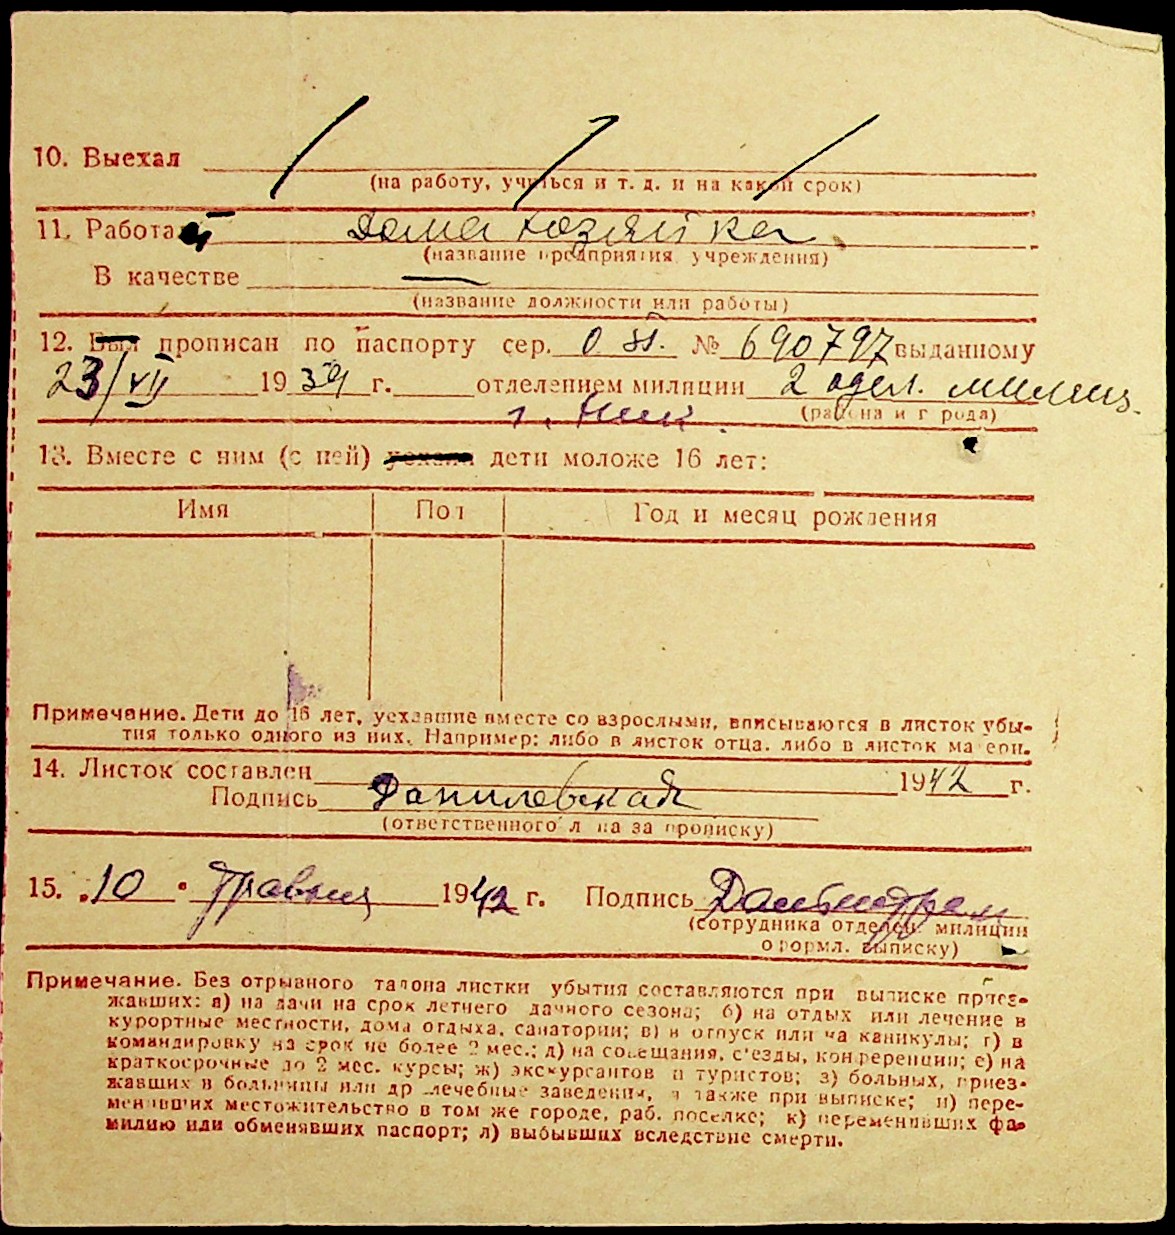 10. Выехал
(на работу, учиться и т. д. и на какой срок)
11. Работа дома хозяйка
(название предприятия учреждения)
В качестве —
(название должности или работы)
12. Был прописан по паспорту сер. № 690797 выданному
23/VII 1939 г. отделением милиции 2 отдел. милиц.
г. Ник.
(района и города)
13. Вместе с ним (с ней) уехали дети моложе 16 лет:
Имя Пол Год и месяц рождения
Примечание. Дети до 16 лет, уехавшие вместе со взрослыми, вписываются в листок убы-
тия только одного из них. Например: либо в листок отца, либо в листок матери.
14. Листок составлен 1942 г.
Подпись Данилевская
(ответственного лица за прописку)
15. "10" травня 1942 г. Подпись
(сотрудника отделен. милиции
оформл. выписку)
Примечание. Без отрывного талона листки убытия составляются при выписке приез-
жавших: а) на дачи на срок летнего дачного сезона; б) на отдых или лечение в
курортные местности, дома отдыха, санатории; в) в отпуск или на каникулы; г) в
командировку на срок не более 2 мес.; д) на совещания, с'езды, конференции; е) на
краткосрочные до 2 мес. курсы; ж) экскурсантов и туристов; з) больных, приез-
жавших в больницы или др лечебные заведения, а также при выписке; и) пере-
менивших местожительство в том же городе, раб. поселке; к) переменивших фа-
милию или обменявших паспорт; л) выбывших вследствие смерти.